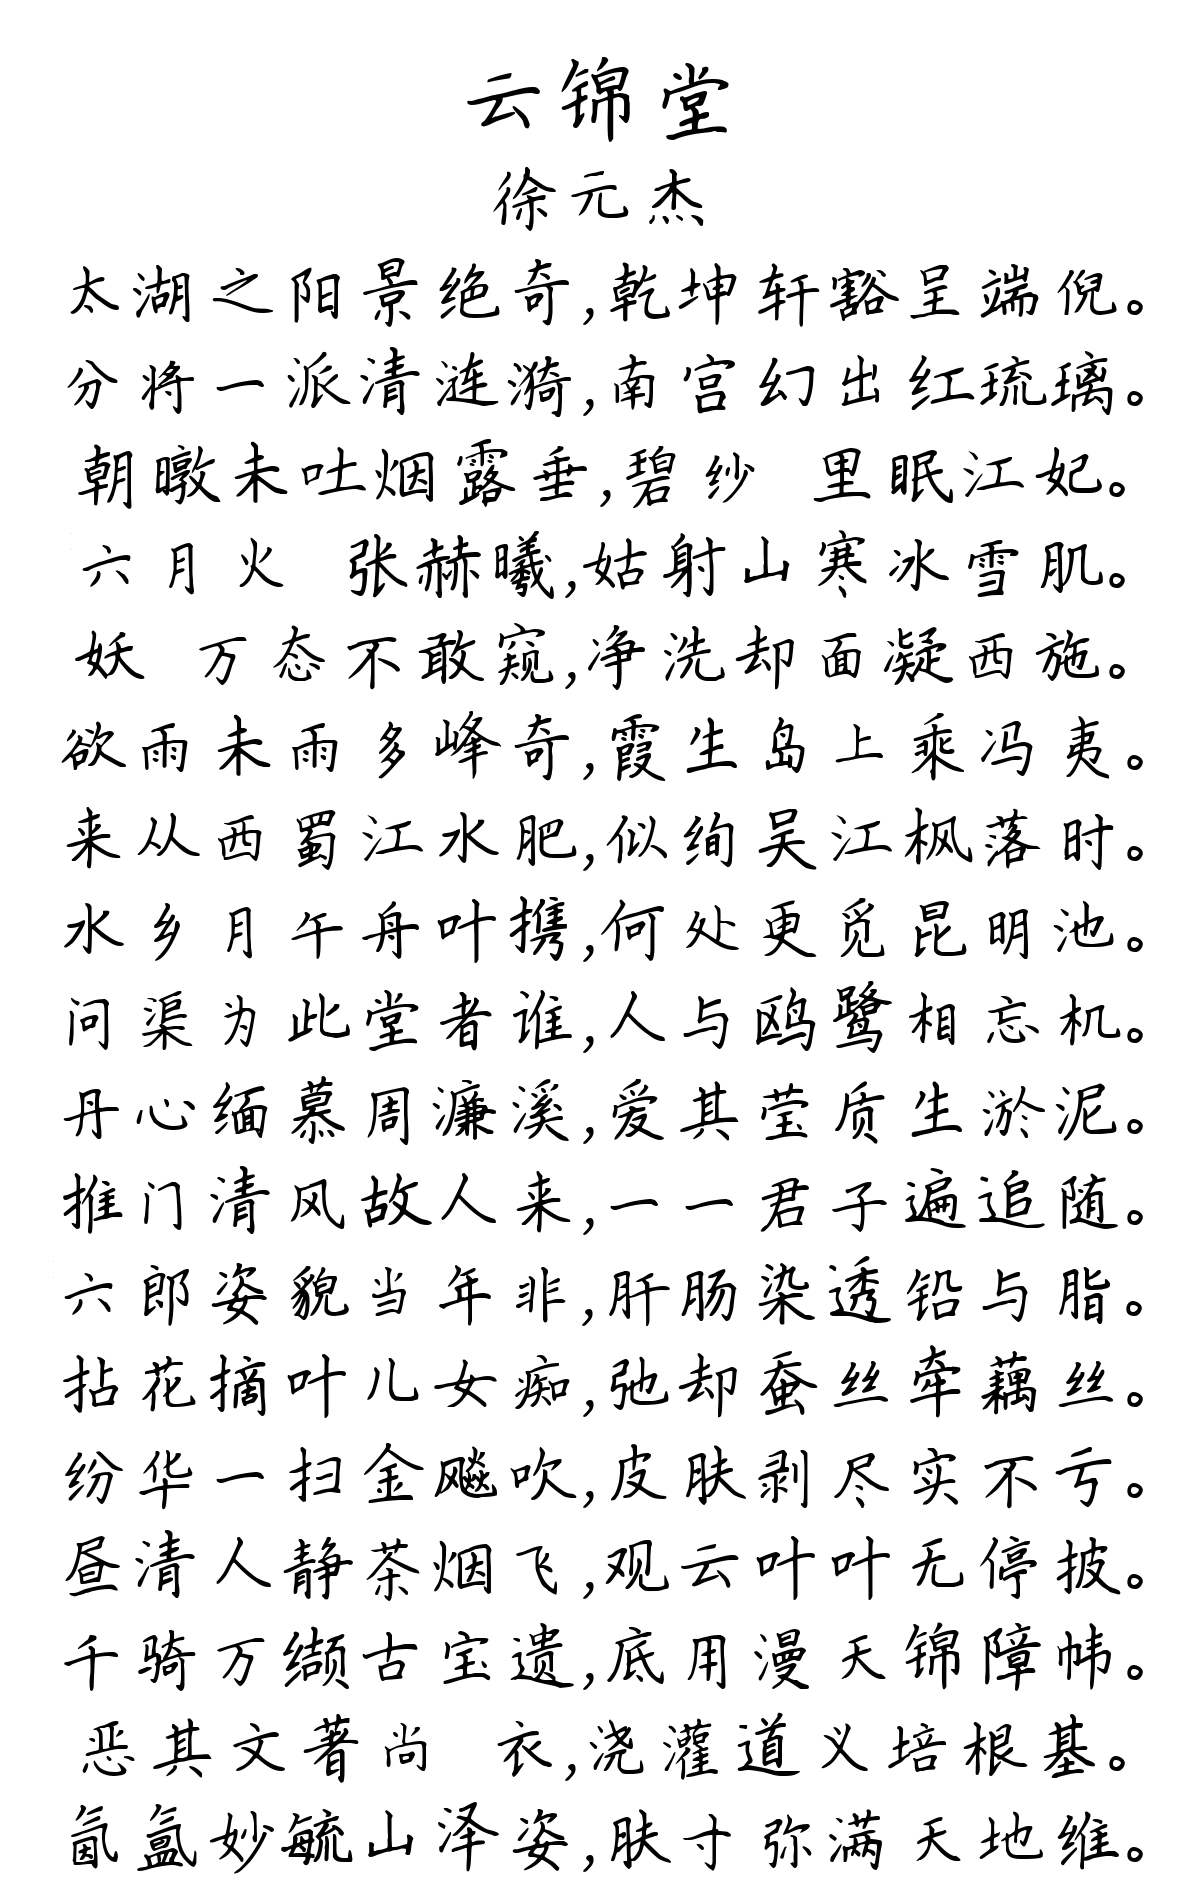 云锦堂
徐元杰
太湖之阳景绝奇,乾坤轩豁呈端倪。
分将一派清涟漪,南宫幻出红琉璃。
朝暾未吐烟露垂,碧纱 里眠江妃。
六月火 张赫曦,姑射山寒冰雪肌。
妖 万态不敢窥,净洗却面凝西施。
欲雨未雨多峰奇,霞生岛上乘冯夷。
来从西蜀江水肥,似绚吴江枫落时。
水乡月午舟叶携,何处更觅昆明池。
问渠为此堂者谁,人与鸥鹭相忘机。
丹心缅慕周濂溪,爱其莹质生淤泥。
推门清风故人来,一一君子遍追随。
六郎姿貌当年非,肝肠染透铅与脂。
拈花摘叶儿女痴,弛却蚕丝牵藕丝。
纷华一扫金飚吹,皮肤剥尽实不亏。
昼清人静茶烟飞,观云叶叶无停披。
千骑万缬古宝遗,底用漫天锦障帏。
恶其文著尚 衣,浇灌道义培根基。
氤氲妙毓山泽姿,肤寸弥满天地维。